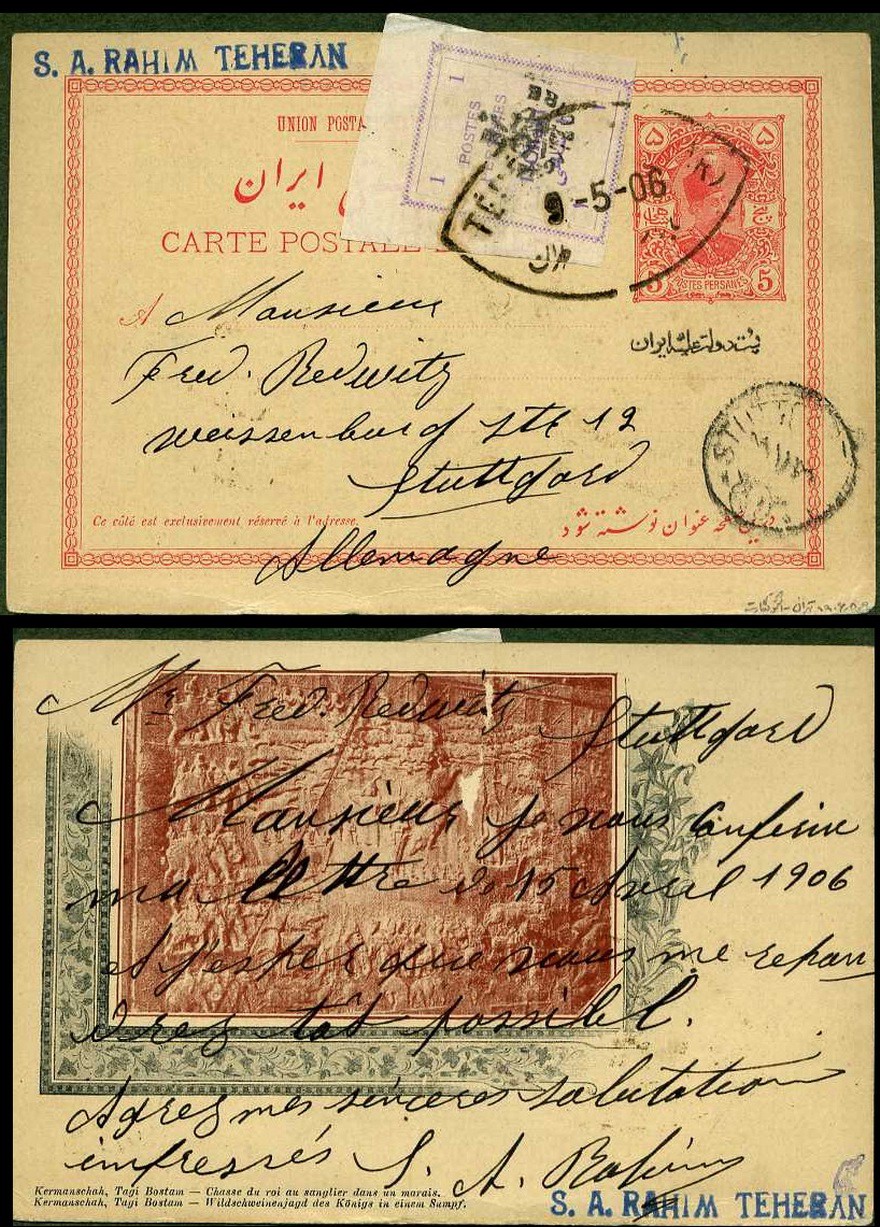 S. A. RAHIM TEHERAN
1 POSTES 1
UNION POSTA
ایران
CARTE POSTALE
9-5-06
۵ ۵
5 POSTES PERSANES 5
A Monsieur
Fred. Redwitz
پست دولت علیه ایران
weissenburg str 12
Stuttgard
STUTTG
Ce côté est exclusivement réservé à l'adresse.
عنوان نوشته شود
Allemagne
Mr Fred. Redwitz Stuttgard
Monsieur je vous confirme
ma lettre de 15 Avril 1906
et j'esper que vous me repon
drez tôt possibel.
Agreez mes sinceres salutation
empressés S. A. Rahim
Kermanschah, Tagi Bostam — Chasse du roi au sanglier dans un marais.
Kermanschah, Tagi Bostam — Wildschweinenjagd des Königs in einem Sumpf.
S. A. RAHIM TEHERAN